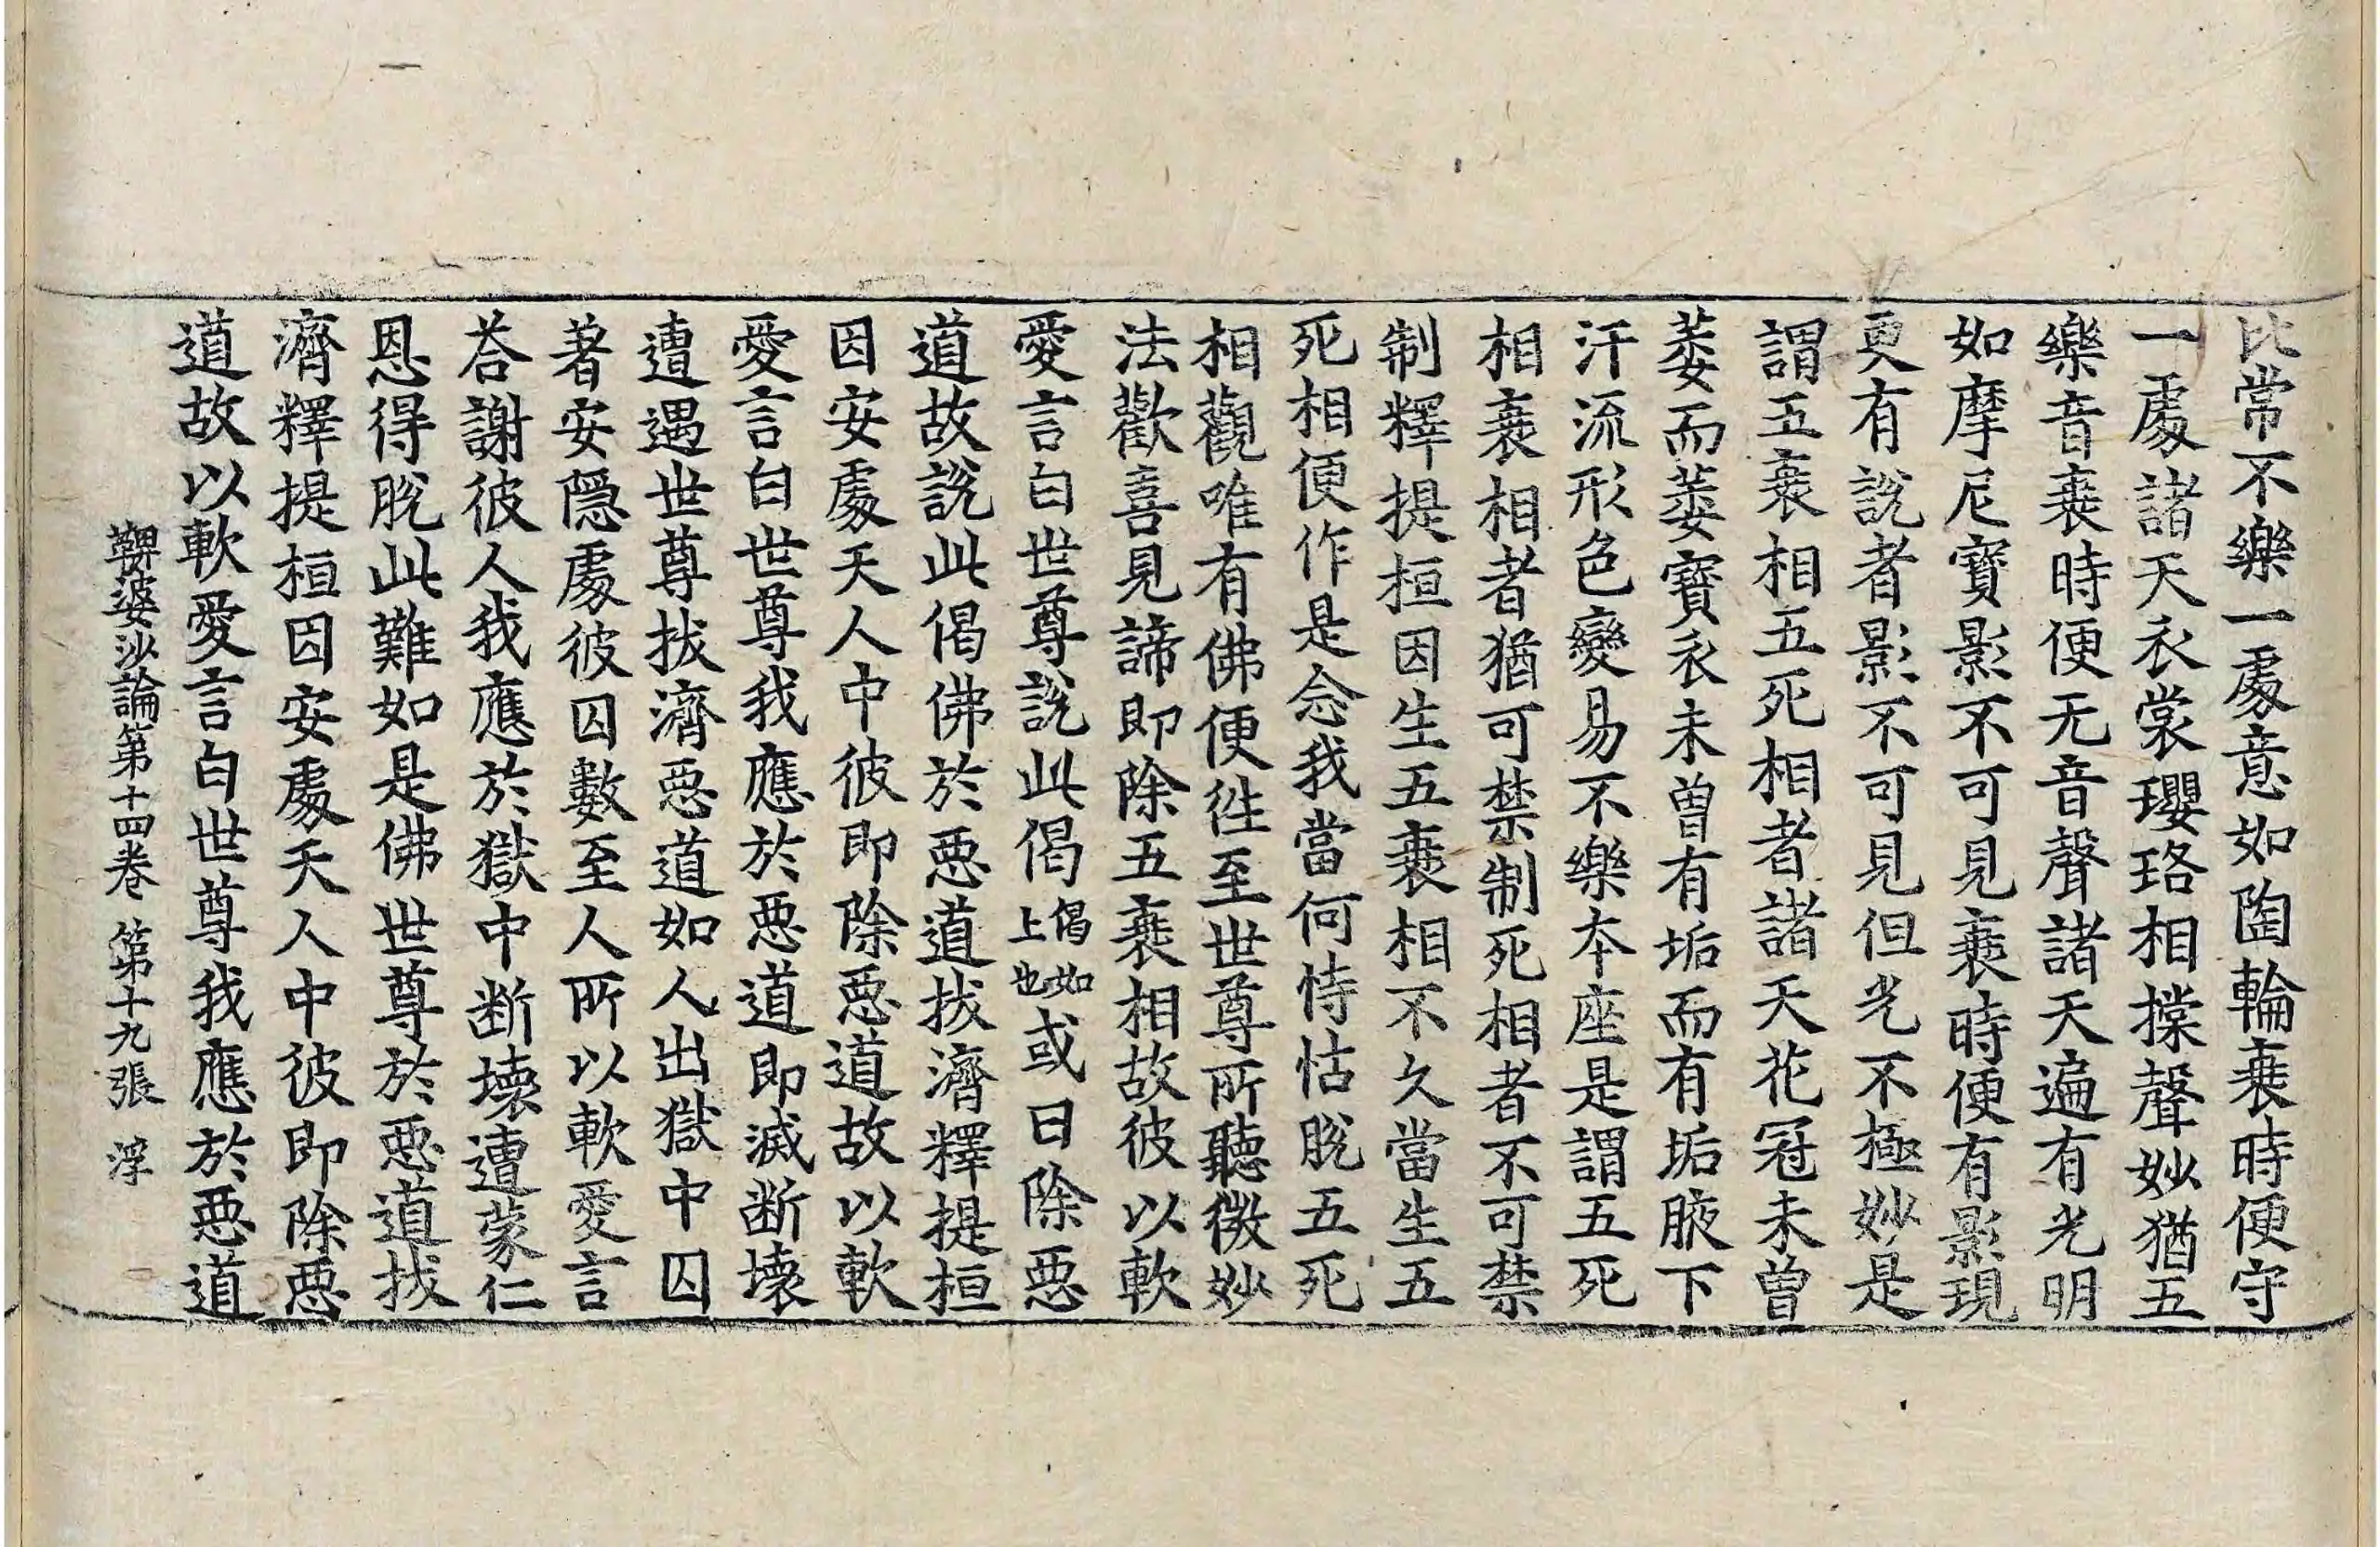 比常不樂一處意如陶輪衰時便守
一處諸天衣裳瓔珞相摚聲妙猶五
樂音衰時便无音聲諸天遍有光明
如摩尼寶影不可見衰時便有影現
更有說者影不可見但光不極妙是
謂五衰相五死相者諸天花冠未曾
萎而萎寶衣未曾有垢而有垢腋下
汗流形色變易不樂本座是謂五死
相衰相者猶可禁制死相者不可禁
制釋提桓因生五衰相不久當生五
死相便作是念我當何恃怙脫五死
相觀唯有佛便往至世尊所聽微妙
法歡喜見諦即除五衰相故彼以軟
愛言白世尊說此偈偈如上也或曰除惡
道故說此偈佛於惡道拔濟釋提桓
因安處天人中彼即除惡道故以軟
愛言白世尊我應於惡道即滅断壞
遭遇世尊拔濟惡道如人出獄中囚
著安隱處彼囚數至人所以軟愛言
荅謝彼人我應於獄中断壞遭蒙仁
恩得脫此難如是佛世尊於惡道拔
濟釋提桓因安處天人中彼即除惡
道故以軟愛言白世尊我應於惡道
鞞婆沙論第十四卷 第十九張 淳